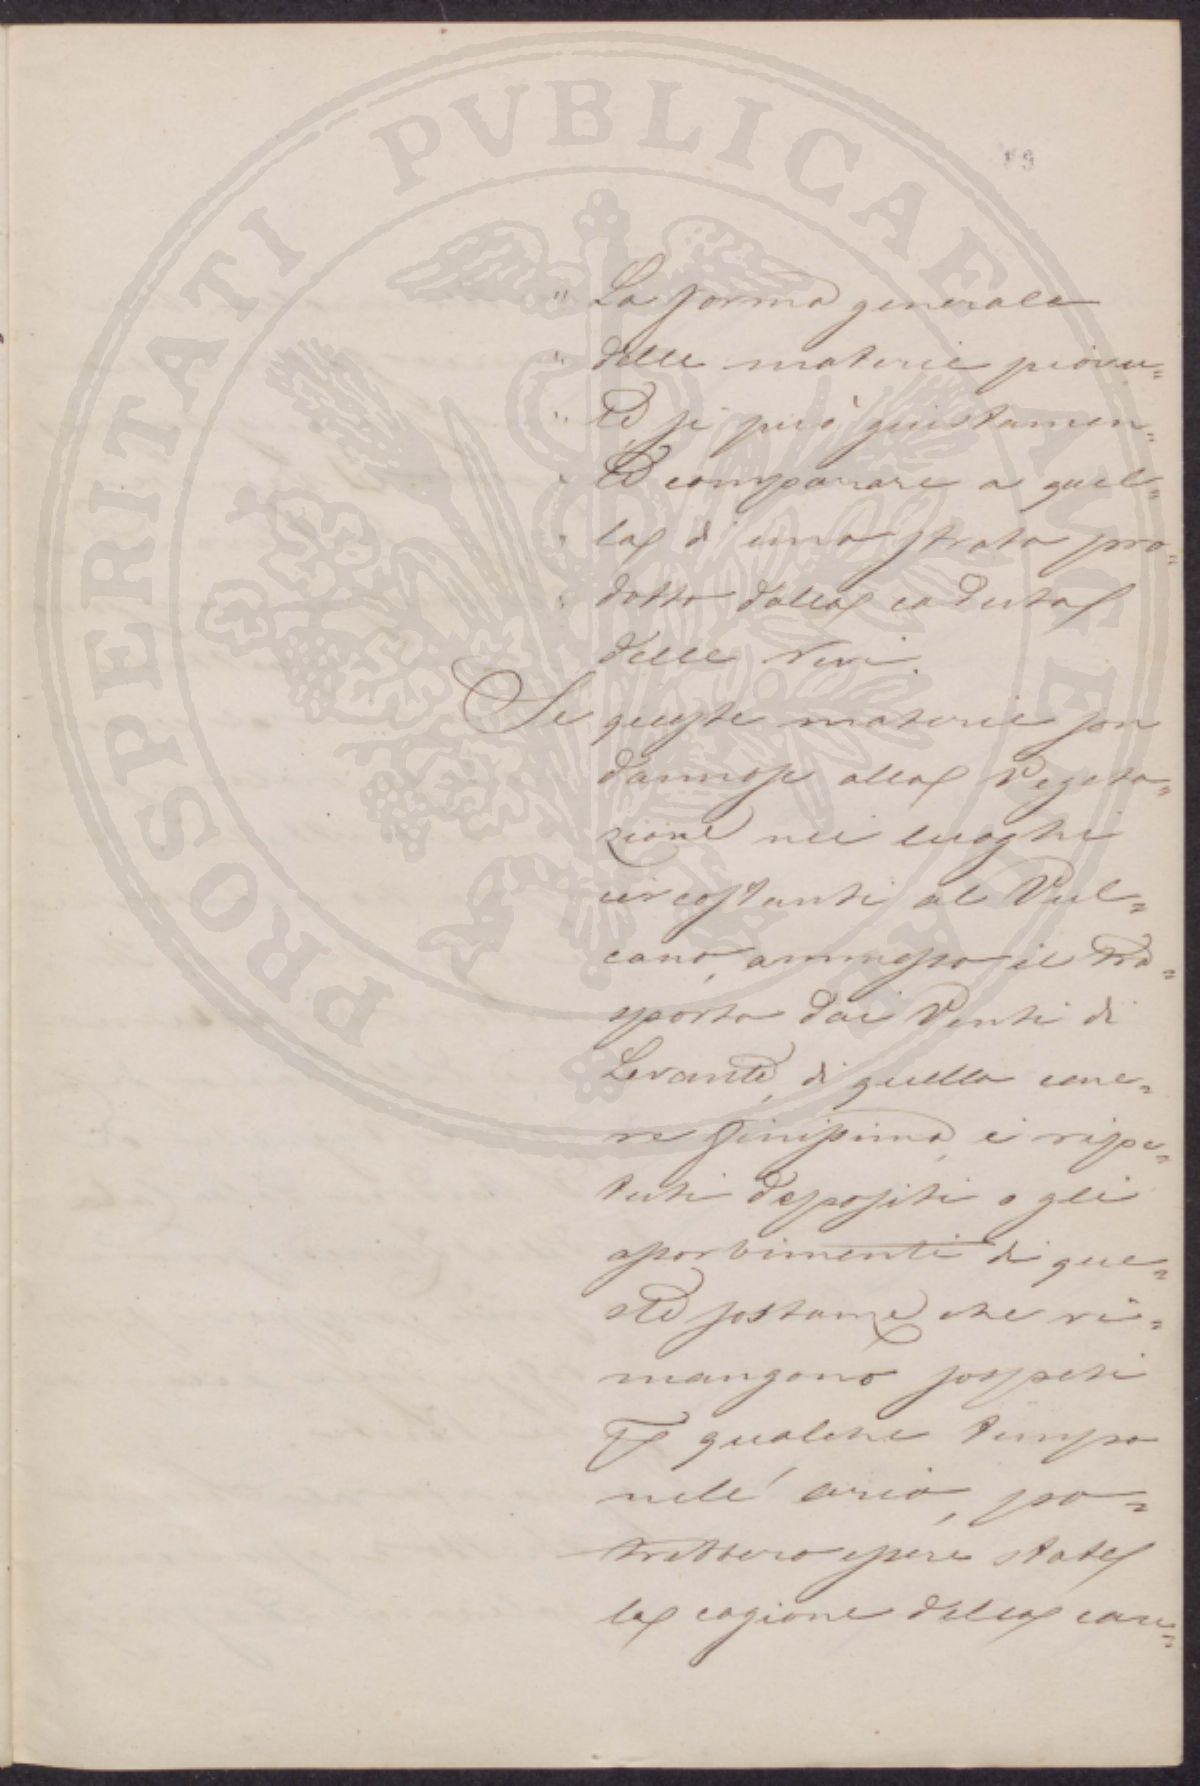 PROSPERITATI PUBLICAE AUGENDAE
" La forma generale
" delle materie piovu=
" te, si può giustamen=
" te comparare a quel=
" la di uno strato pro=
" dotto dalla caduta
delle Nevi.
Se queste materie son
dannose alla Vegeta=
zione nei luoghi
circostanti al Vul=
cano, ammesso il tra=
sporto dai Venti di
Levante, di quella cene=
re finissima, i ripe=
tuti depositi o gli
assorbimenti di que=
ste sostanze che ri=
mangono sospesi
qualche tempo
nell'aria, po=
trebbero essere state
la cagione della care=